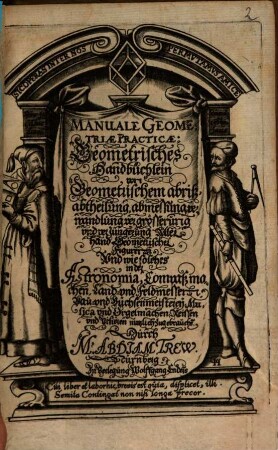 2
MANUALE GEOME
TRIÆ PRACTICÆ:
Geometrisches
Handbüchlein
von
Geometrischem abriß,
abtheilung, abmessung,
wandlung, vergrösserung
vnd verjüngerung Aller
hand Geometrischer
Figuren
Und wie solches
in der
Astronomia, Compaßma
chen, Land und Feldmesserei,
Bau und Büchsenmeisterei, Mu
sica und Orgelmachen, Reissen
und nützlich zugebrauchen
Durch
M. ABDIAM TREW.
Nürnberg
In Verlegung Wolffgang Endter
Cui liber et labor hic brevis est quia, displicet, illi
Semita Contingat non nisi longa precor.